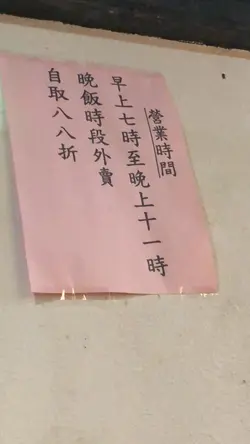 營業時間
早上七時至晚上十一時
晚飯時段外賣
自取八八折